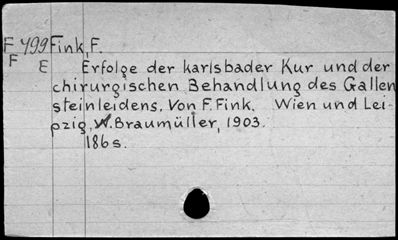 F 499 Fink, F.
F E Erfolge der karlsbader Kur und der
chirurgischen Behandlung des Gallen
steinleidens. Von F. Fink. Wien und Lei-
pzig, W. Braumüller, 1903.
186 s.